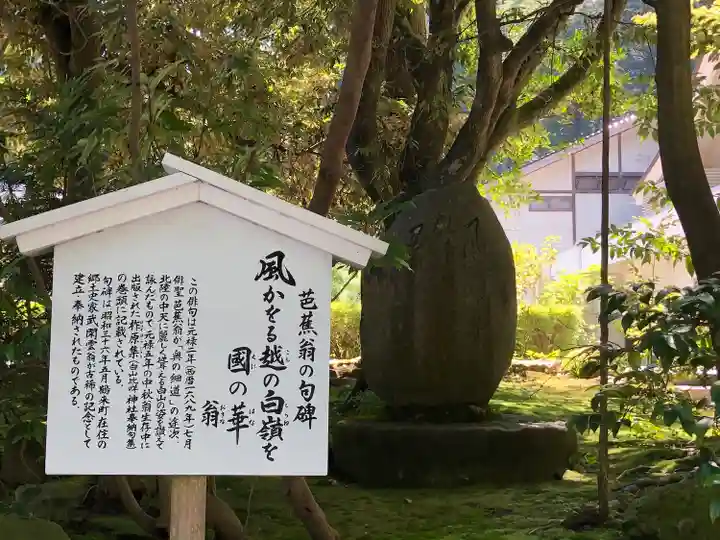 芭蕉翁の句碑
風かをる越の白嶺を
國の華
翁
こし
しらね
くに
はな
おきな
この俳句は元禄二年(西暦一六八九年)七月
俳聖芭蕉翁が「奥の細道」の途次、
北陸の中天に麗しく聳える白山の姿を讃えて
詠んだもので、元禄五年の中秋翁生存中に
出版された柞原集(白山比咩神社奉納句集)
の巻頭に記載されている。
句碑は昭和三十六年五月鶴来町在住の
郷土史家武閑雲翁が古稀の記念として
建立奉納されたものである。